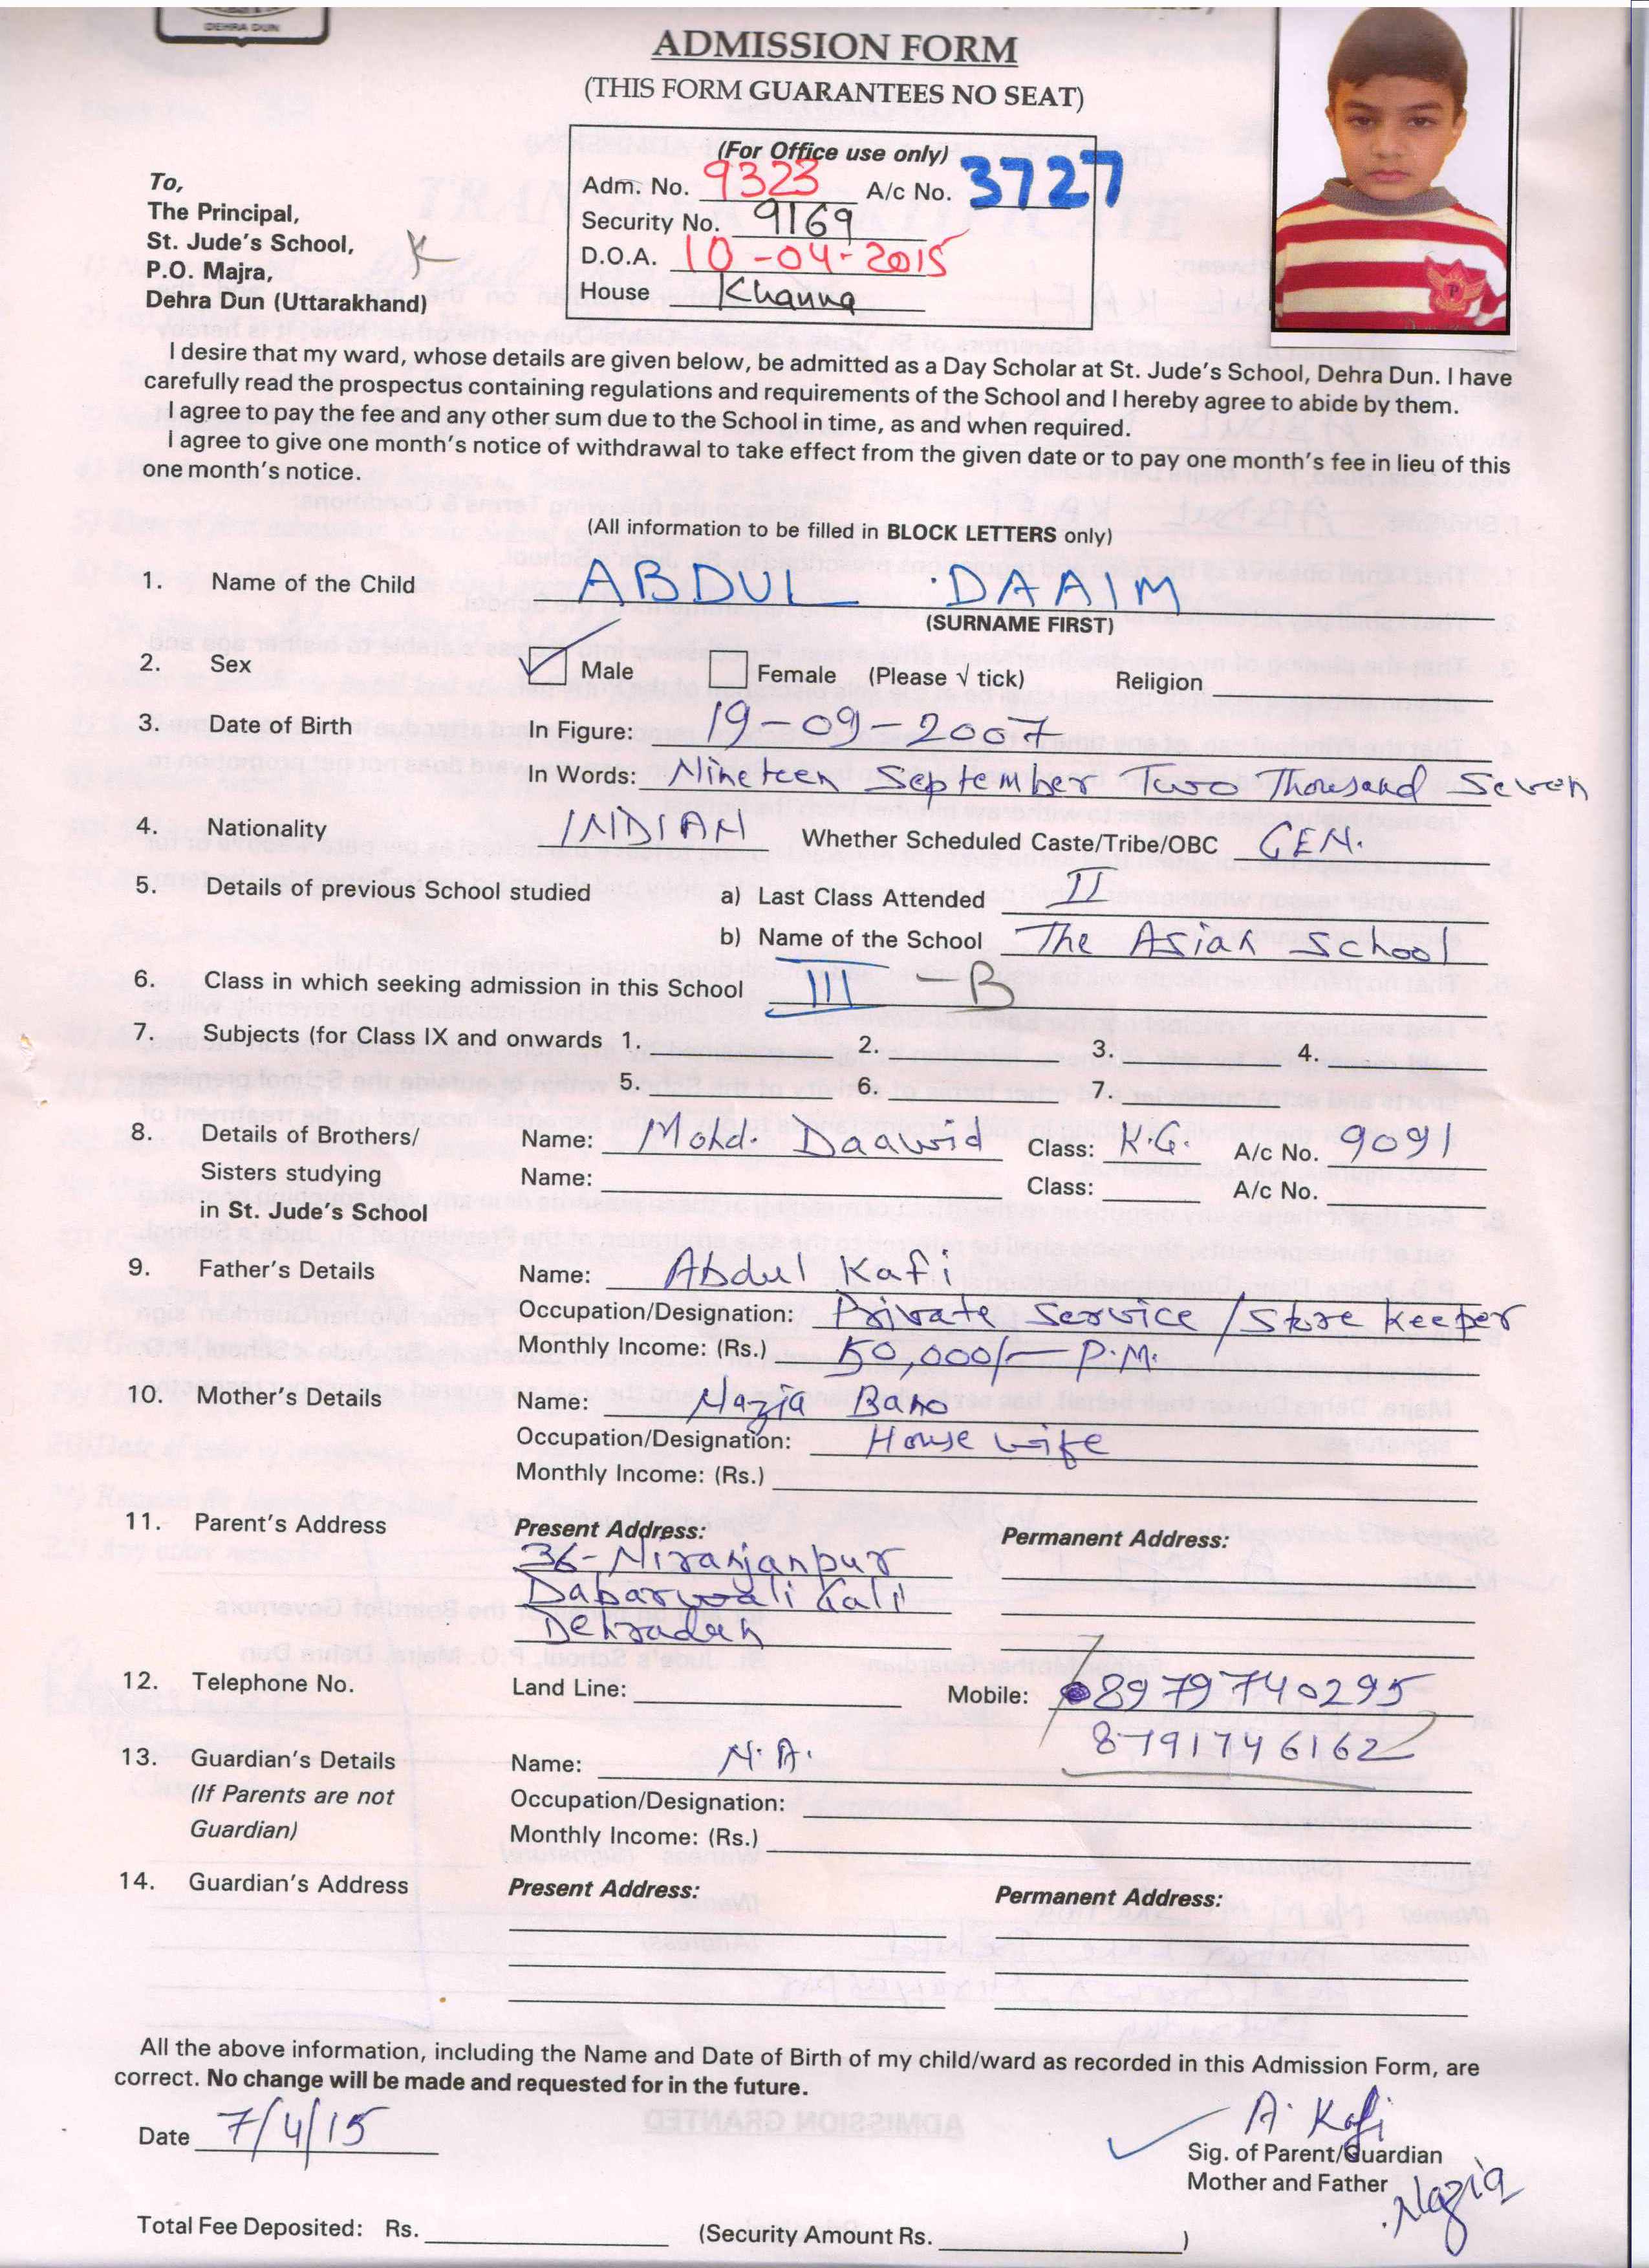 DEHRA DUN
ADMISSION FORM
(THIS FORM GUARANTEES NO SEAT)
(For Office use only)
Adm. No. 9323 A/c No. 3727
Security No. 9169
D.O.A. 10-04-2015
House Khanna
To,
The Principal,
St. Jude's School,
P.O. Majra,
Dehra Dun (Uttarakhand)
K
I desire that my ward, whose details are given below, be admitted as a Day Scholar at St. Jude's School, Dehra Dun. I have
carefully read the prospectus containing regulations and requirements of the School and I hereby agree to abide by them.
I agree to pay the fee and any other sum due to the School in time, as and when required.
I agree to give one month's notice of withdrawal to take effect from the given date or to pay one month's fee in lieu of this
one month's notice.
(All information to be filled in BLOCK LETTERS only)
1. Name of the Child ABDUL DAAIM
(SURNAME FIRST)
2. Sex Male Female (Please √ tick) Religion
3. Date of Birth In Figure: 19-09-2007
In Words: Nineteen September Two Thousand Seven
4. Nationality INDIAN Whether Scheduled Caste/Tribe/OBC GEN.
5. Details of previous School studied a) Last Class Attended II
b) Name of the School The Asian School
6. Class in which seeking admission in this School III - B
7. Subjects (for Class IX and onwards 1. 2. 3. 4.
5. 6. 7.
8. Details of Brothers/ Name: Mohd. Daawid Class: K.G. A/c No. 9091
Sisters studying Name: Class: A/c No.
in St. Jude's School
9. Father's Details Name: Abdul Kafi
Occupation/Designation: Private Service/Store Keeper
Monthly Income: (Rs.) 50,000/- P.M.
10. Mother's Details Name: Nazia Bano
Occupation/Designation: House wife
Monthly Income: (Rs.)
11. Parent's Address Present Address: Permanent Address:
36-Niranjanpur
Dabarwali Gali
Dehradun
12. Telephone No. Land Line: Mobile: 8979740295
8791746162
13. Guardian's Details Name: N.A.
(If Parents are not Occupation/Designation:
Guardian) Monthly Income: (Rs.)
14. Guardian's Address Present Address: Permanent Address:
All the above information, including the Name and Date of Birth of my child/ward as recorded in this Admission Form, are
correct. No change will be made and requested for in the future.
Date 7/4/15
A. Kafi
Sig. of Parent/Guardian
Mother and Father
Nazia
Total Fee Deposited: Rs. (Security Amount Rs. )